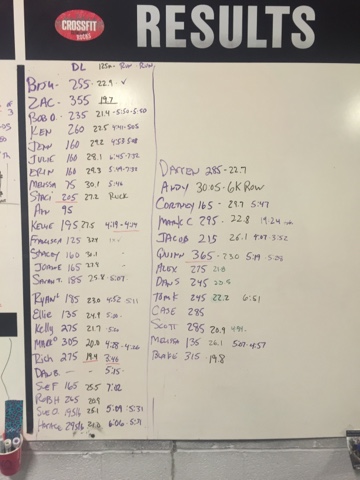 CROSSFIT
RESULTS
DL 125m Row Run
255 22.9
ZAC- 355 19.7
BOB O. 235 21.4 -5:50-5:50
KEN 260 22.5 4:41-5:03
JEN 160 29.2 4:53 5:08
JULIE 160 28.1 6:45-7:32
ERIN 160 29.3 5:49-7:30
MELISSA 75 30.1 5:46
STACI 205 27.2 RUCK
95
195 27.5 4:19-4:24
125
STACEY 160 30.1
JOANIE 165 27.9
185 25.8 5:07
RYAN 185 23.0 4:52 5:11
Ellie 135 24.9 5:20
Kelly 275 21.7 5:20
MARK 305 20.0 4:28-4:26
Rich 275 19.4 3:40
DAN B. - - 5:15
165 25.5 7:02
ROB H 265 20.8
SUE O 25.1 5:09 5:31
6:06-5:31
DARREN 285-22.7
ANDY 30:05-6K ROW
CORTNEY 165-29.7 5:47
MARK C 295- 22.8 19:24
JACOB 215 26.1 4:07-3:52
QUINN 365-23.0 5:19 5:08
ALEX 275 21.0
DAN S 245 20.5
245 22.2 6:51
CASE 285
SCOTT 285 20.9 4:41
MELISSA 135 26.1 5:07-4:57
BLAKE 315 19.8